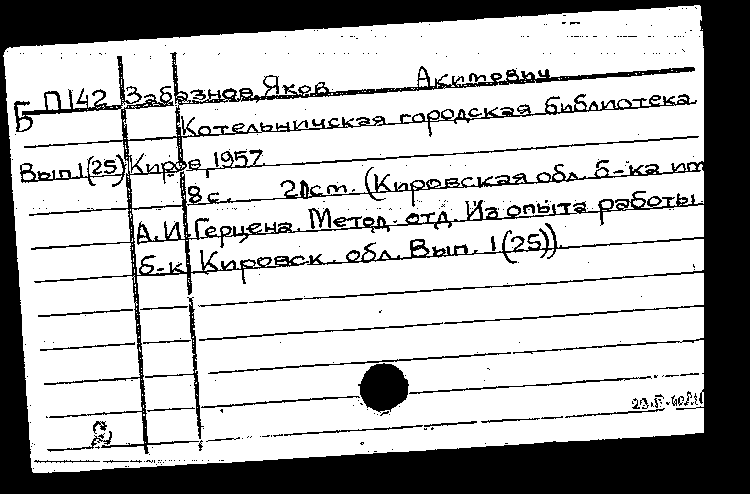 Б П142 Забазнов, Яков Акимович
Котельничская городская библиотека.
Вып 1(25) Киров, 1957
8 с. 20 ст. (Кировская обл. б-ка им
А. И. Герцена. Метод. отд. Из опыта работы
б-к Кировск. обл. Вып. 1 (25)).